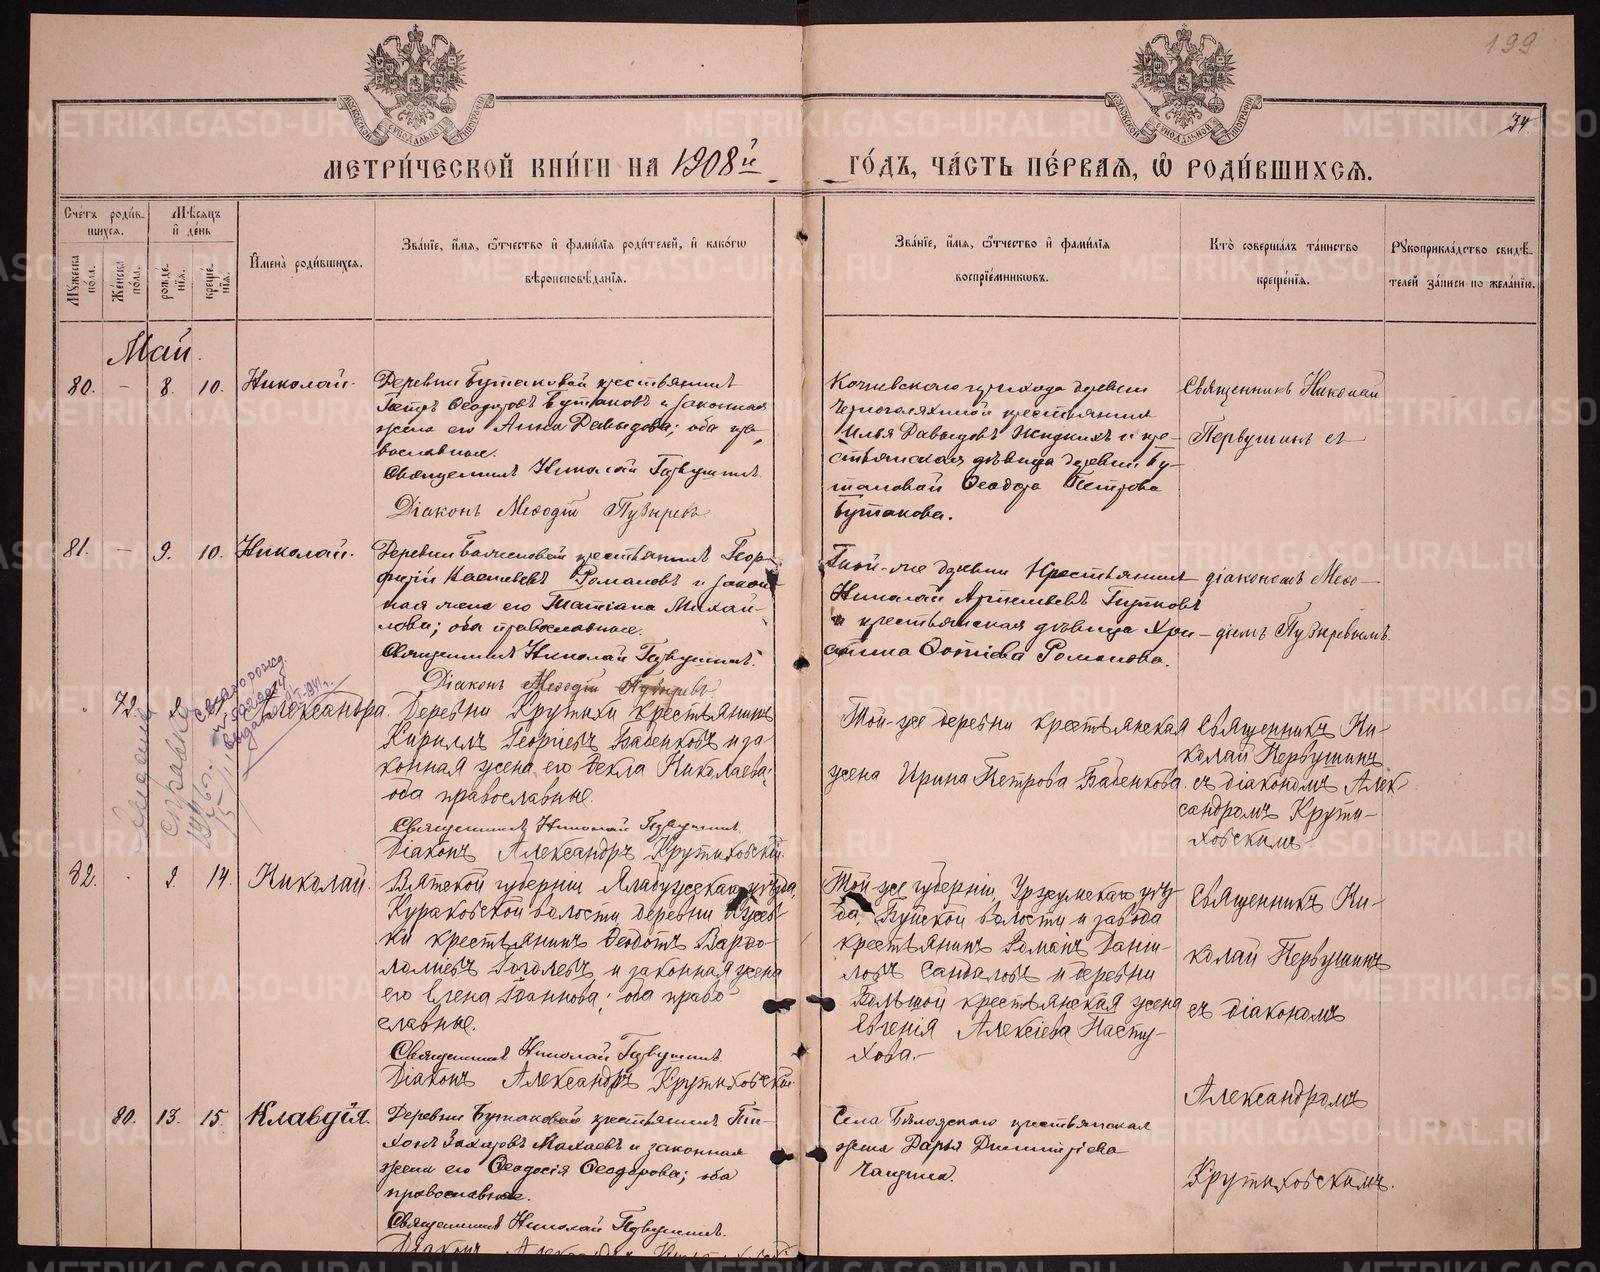 199
34.
МОСКОВСКОЙ СУНОДАЛЬНОЙ ТИПОГРАФІИ
МОСКОВСКОЙ СУНОДАЛЬНОЙ ТИПОГРАФІИ
МЕТРИ́ЧЕСКОЙ КНИ́ГИ НА 1908й ГО́ДЪ, ЧА́СТЬ ПЕ́РВАѦ, Ѡ РОДИ́ВШИХСѦ.
Сче́тъ роди́в-
шихсѧ.
Мѣ́сѧцъ
и де́нь
Мꙋжеска по́ла.
Же́нска по́ла.
рожде́-
нїѧ.
креще́-
нїѧ.
И҆мена̀ роди́вшихсѧ.
Зва́нїе, и҆́мѧ, ѻ҆́тчество и҆ фами́лїѧ роди́телей, и҆ како́гѡ
вѣроисповѣ́данїѧ.
Зва́нїе, и҆́мѧ, ѻ҆́тчество и҆ фами́лїѧ
воспрїе́мникѡвъ.
Кто̀ соверша́лъ та́инство
креще́нїѧ.
Рꙋкоприкла́дство свидѣ́-
телей за́писи по жела́нїю.
Май.
80. – 8. 10. Николай.
Деревни Бутаковой крестьянинъ
Петръ Ѳеодоровъ Бутаковъ и законная
жена его Анна Давыдова; оба пра-
вославные.
Священникъ Николай Первушинъ.
Діаконъ Меѳодій Пузыревъ
Кочневского прихода деревни
крестьянинъ
Илья Давыдовъ Жидкихъ и кре-
стьянская дѣвица деревни Бу-
таковой Ѳеодора Петрова
Бутакова.
Священникъ Николай
Первушинъ съ
81. – 9. 10. Николай.
Деревни крестьянинъ Геор-
гій Романовъ и закон-
ная жена его Татіана Михай-
лова; оба православные.
Священникъ Николай Первушинъ.
Діаконъ Меѳодій Пузыревъ
Той-же деревни крестьянинъ
Николай Артемьевъ
и крестьянская дѣвица Хри-
стина Фотіева Романова.
діакономъ Меѳо-
діемъ Пузыревымъ.
79. 9. Александра.
Деревни Крутихи крестьянинъ
Кириллъ Георгіевъ Бабенковъ и за-
конная жена его Ѳекла Николаева;
оба православные.
Священникъ Николай Первушинъ.
Діаконъ Александръ Крутиховскій.
Той-же деревни крестьянская
жена Ирина Петрова Бабенкова.
Священникъ Ни-
колай Первушинъ
съ діакономъ Алек-
сандромъ Крути-
ховскимъ
справка
82. 9. 14. Николай.
Вятской губерніи Елабужскаго уѣзда,
Кураковской волости, деревни
крестьянинъ Ѳеодотъ Варѳо-
ломѣевъ Гоголевъ и законная жена
его Елена Іоаннова; оба право-
славные.
Священникъ Николай Первушинъ.
Діаконъ Александръ Крутиховскій.
Той-же губерніи, Уржумскаго уѣз-
да Буйской волости и завода
крестьянинъ Романъ Даніи-
ловъ Сандаловъ и деревни
Большой крестьянская жена
Евгенія Алексіева Пасту-
хова.
Священникъ Ни-
колай Первушинъ
съ діакономъ
Александромъ
Крутиховскимъ.
80. 13. 15. Клавдія.
Деревни Бутаковой крестьянинъ Ти-
хонъ Захаровъ Махаевъ и законная
жена его Ѳеодосія Ѳеодорова; оба
православные.
Священникъ Николай Первушинъ.
Діаконъ Александръ
Села крестьянская
жена Дарья Димитріева
Чащина.
METRIKI.GASO-URAL.RU